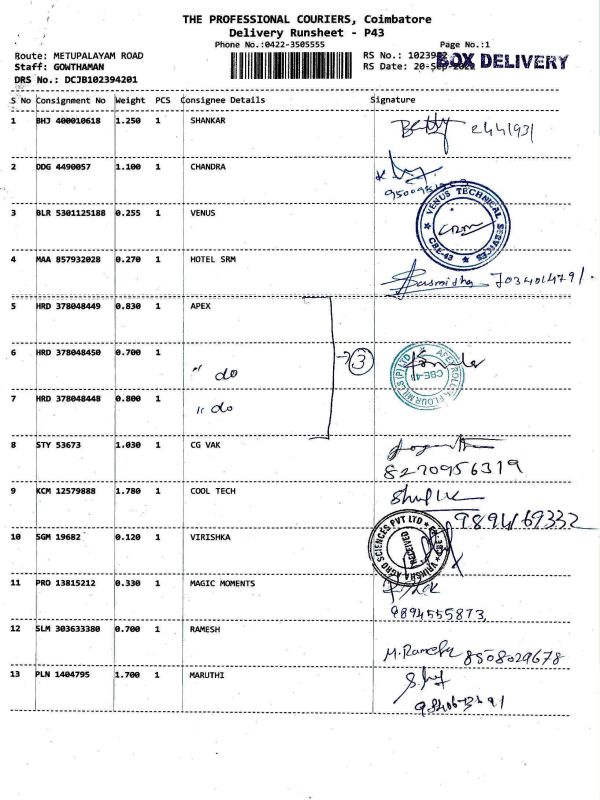 THE PROFESSIONAL COURIERS, Coimbatore
Delivery Runsheet - P43
Phone No.:0422-3505555 Page No.:1
Route: METUPALAYAM ROAD RS No.: 1023942
Staff: GOWTHAMAN RS Date: 20-Sep-2022 BOX DELIVERY
DRS No.: DCJB102394201
S No Consignment No Weight PCS Consignee Details Signature
1 BHJ 400010618 1.250 1 SHANKAR Betty 2441931
2 DDG 4490057 1.100 1 CHANDRA
3 BLR 5301125188 0.255 1 VENUS VENUS TECHNICAL SERVICES CBE-43
4 MAA 857932028 0.270 1 HOTEL SRM
5 HRD 378048449 0.830 1 APEX
6 HRD 378048450 0.700 1 " do 3 CBE-43
7 HRD 378048448 0.800 1 " do
8 STY 53673 1.030 1 CG VAK
8270956319
9 KCM 12579888 1.780 1 COOL TECH
9894169332
10 SGM 19682 0.120 1 VIRISHKA AGRO SCIENCES PVT LTD RECEIVED
11 PRO 13815212 0.330 1 MAGIC MOMENTS
9894555873
12 SLM 303633380 0.700 1 RAMESH
M.Ramesh 8508029678
13 PLN 1404795 1.700 1 MARUTHI